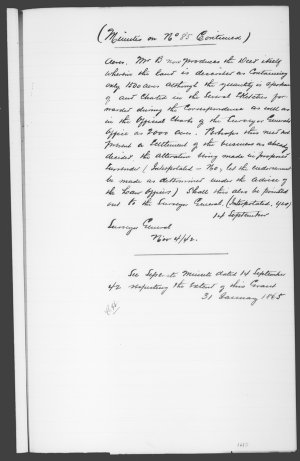 (Minutes on No 85 Continued)
Acres. Mr B now produces the Deed itself
wherein the land is described as containing
only 1500 acres although the quantity is spoken
of and Charted in the Several for-
warded during the Correspondence as well as
in the Official Chart of the Surveyor General's
Office as 2000 acres. Perhaps this need not
prevent a Settlement of the business as already
decided the alteration being made in proposed
Surrender (Interpolated - No, let the endorsement
be made as determined under the advice of
the Law Officers) Shall this also be pointed
out to the Surveyor General (Interpolated, yes)
14 September
Surveyor General
Nov 4/42.
See Separate Minute dated 14 September
42 respecting the extent of this Grant
31 January 1845